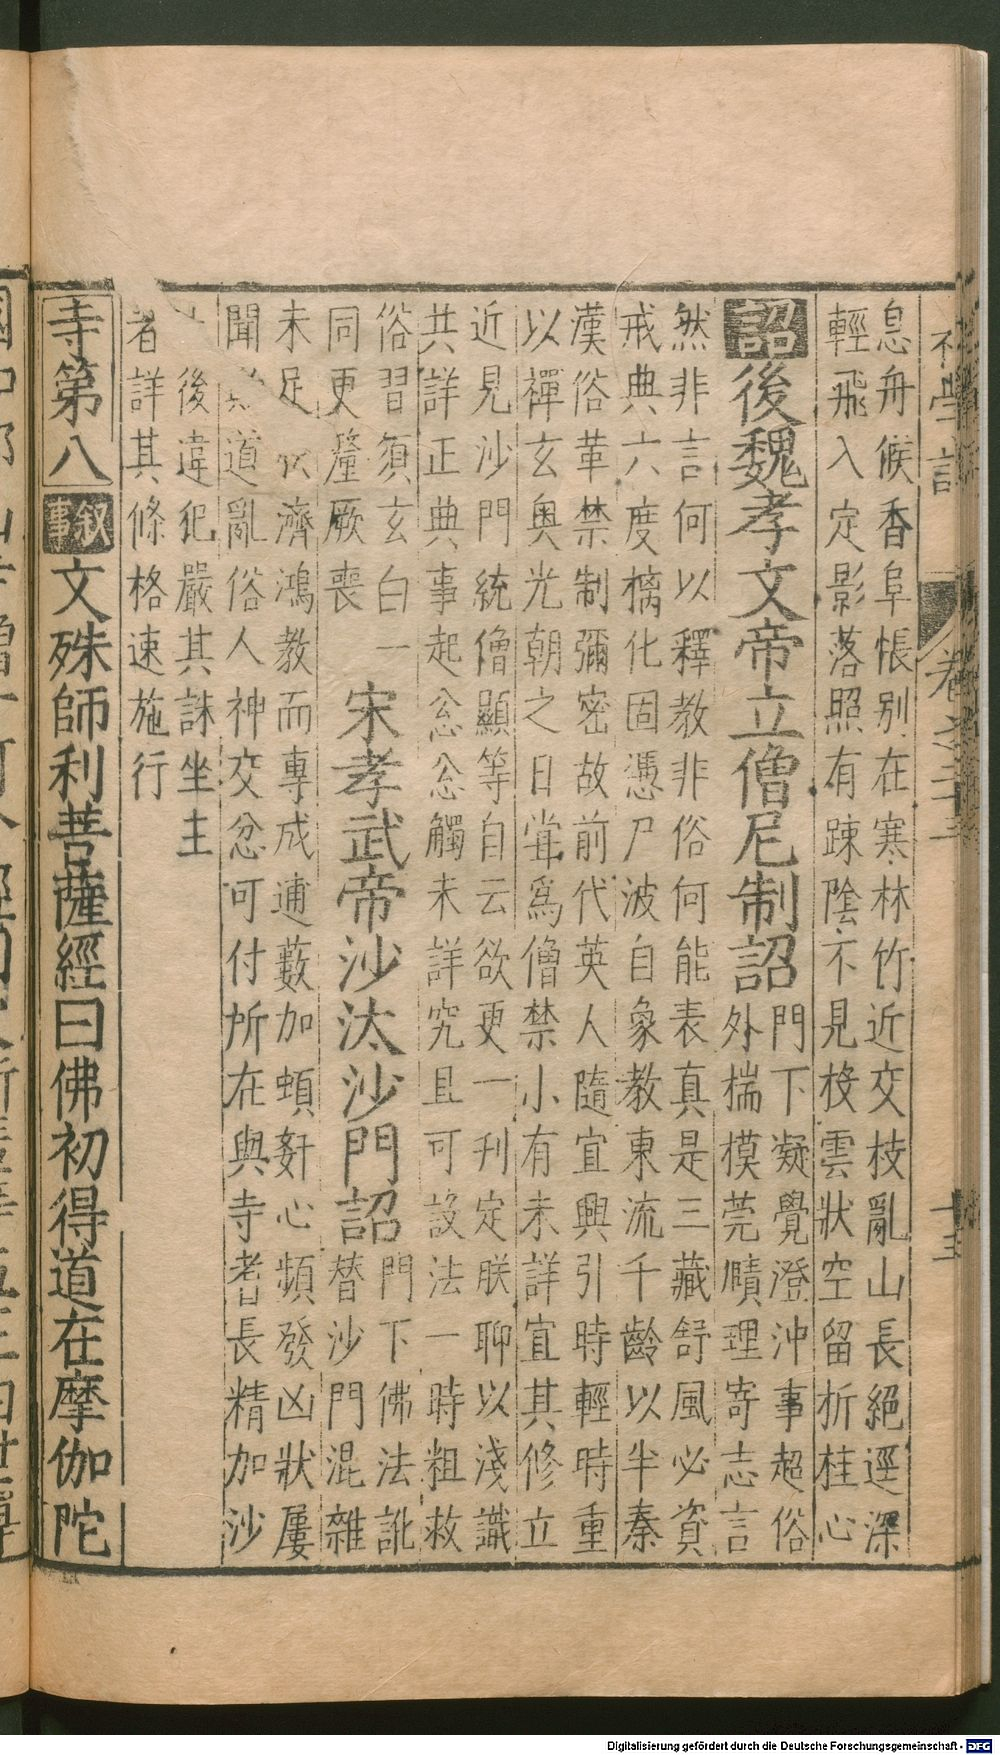 初學記
卷之二十三
十三
息舟候香阜帳別在寒林竹近交枝亂山長絕逕深
輕飛入定影落照有踈陰不見投雲狀空留折桂心
詔後魏孝文帝立僧尼制詔門下凝覺澄沖事超俗
外揣模莞賾理寄志言
然非言何以釋教非俗何能表真是三藏舒風必資
戒典六度摛化固憑尸波自象教東流千齡以半秦
漢俗革禁制彌密故前代英人隨宜興引時輕時重
以禪玄奥光朝之日甞爲僧禁小有未詳宜其修立
近見沙門統僧顯等自云欲更一刋定朕聊以淺識
共詳正典事起忿忿觸未詳究且可設法一時粗救
俗習須玄白一
同更釐厥喪
宋孝武帝沙汰沙門詔門下佛法訛
替沙門混雜
未足 濟鴻教而專成逋藪加頃姧心頻發凶狀屢
聞 道亂俗人神交忿可付所在與寺耆長精加沙
後違犯嚴其誅坐主
者詳其條格速施行
寺第八叙事文殊師利菩薩經曰佛初得道在摩伽陀